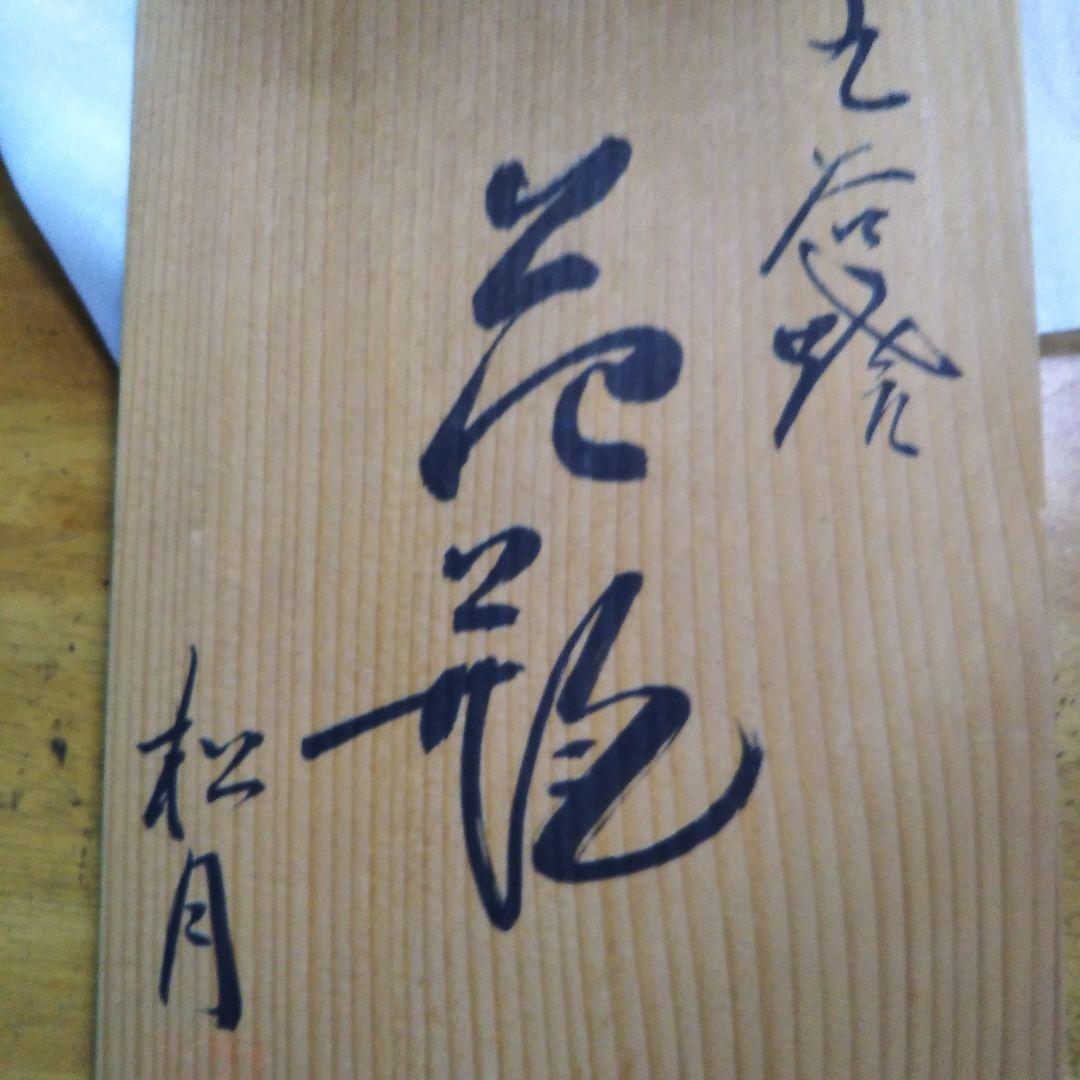 九谷
花瓶
松月